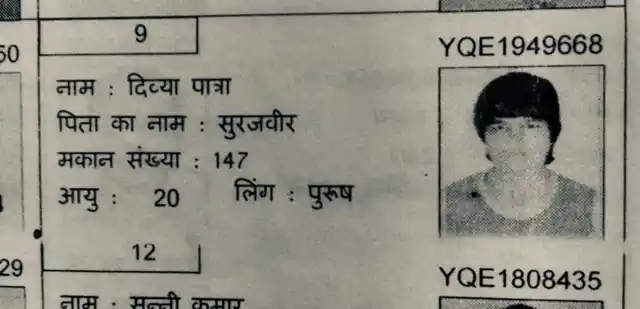 50
9
YQE1949668
नाम : दिव्या पात्रा
पिता का नाम : सुरजवीर
मकान संख्या : 147
आयु : 20 लिंग : पुरूष
29
12
YQE1808435
नाम : सन्नी कुमार